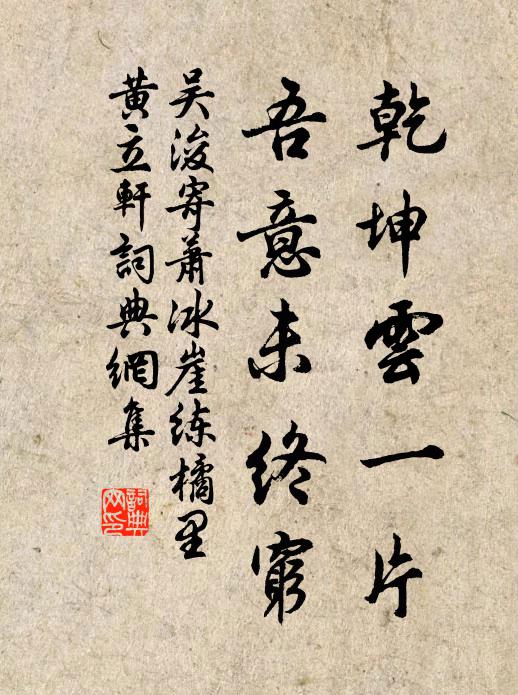 乾坤雲一片
吾意未終窮
吴浚寄蕭冰崖练橘里
黄立軒詞典網集
詞典
网印